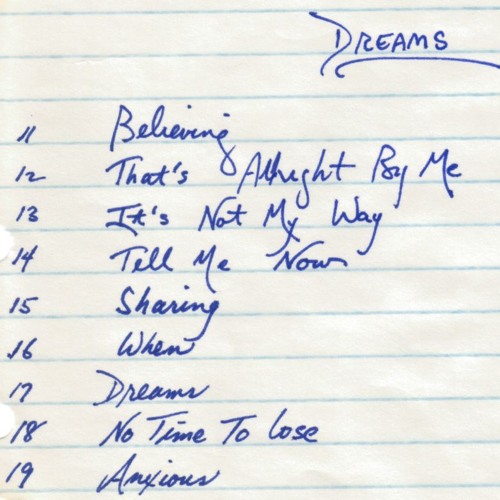 DREAMS
11 Believing
12 That's Allright By Me
13 It's Not My Way
14 Tell Me Now
15 Sharing
16 When
17 Dreams
18 No Time To Lose
19 Anxious